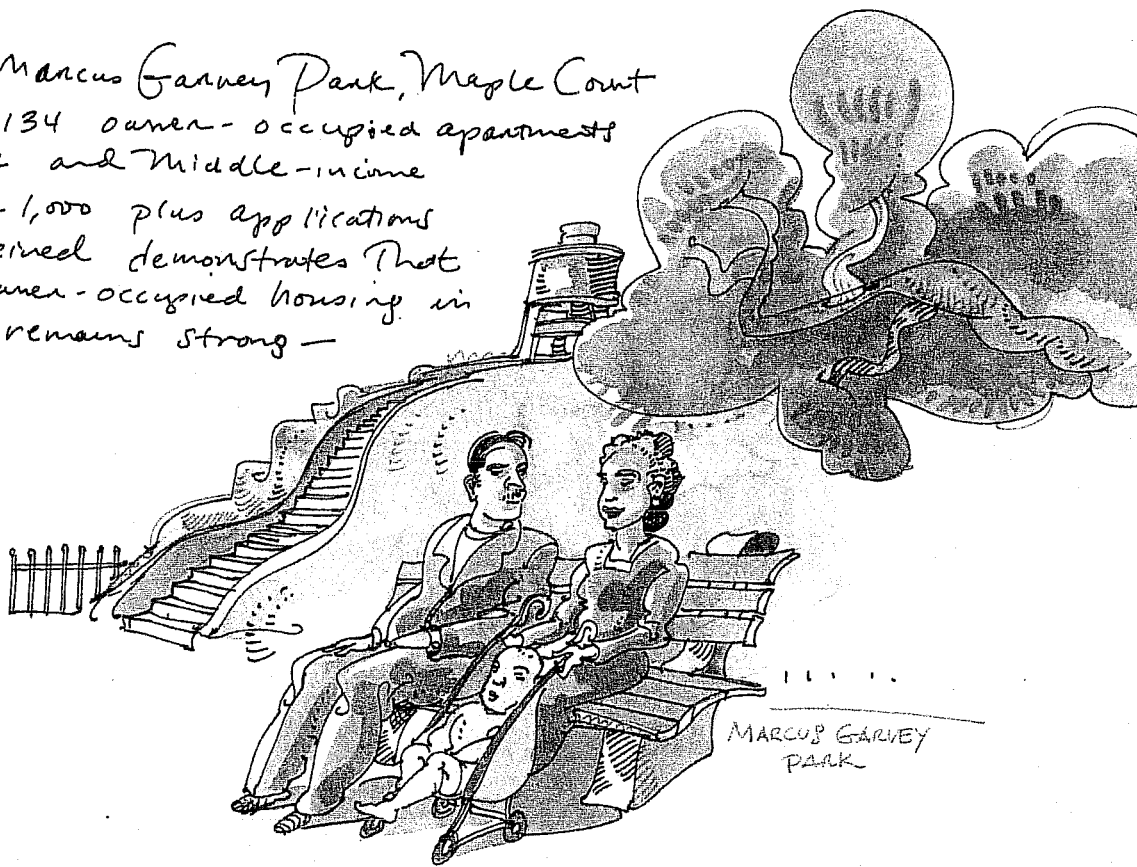 Marcus Garvey Park, Maple Court
134 owner-occupied apartments
and Middle-income
1,000 plus applications
eived demonstrates That
owner-occupied housing in
remains strong —
MARCUS GARVEY
PARK